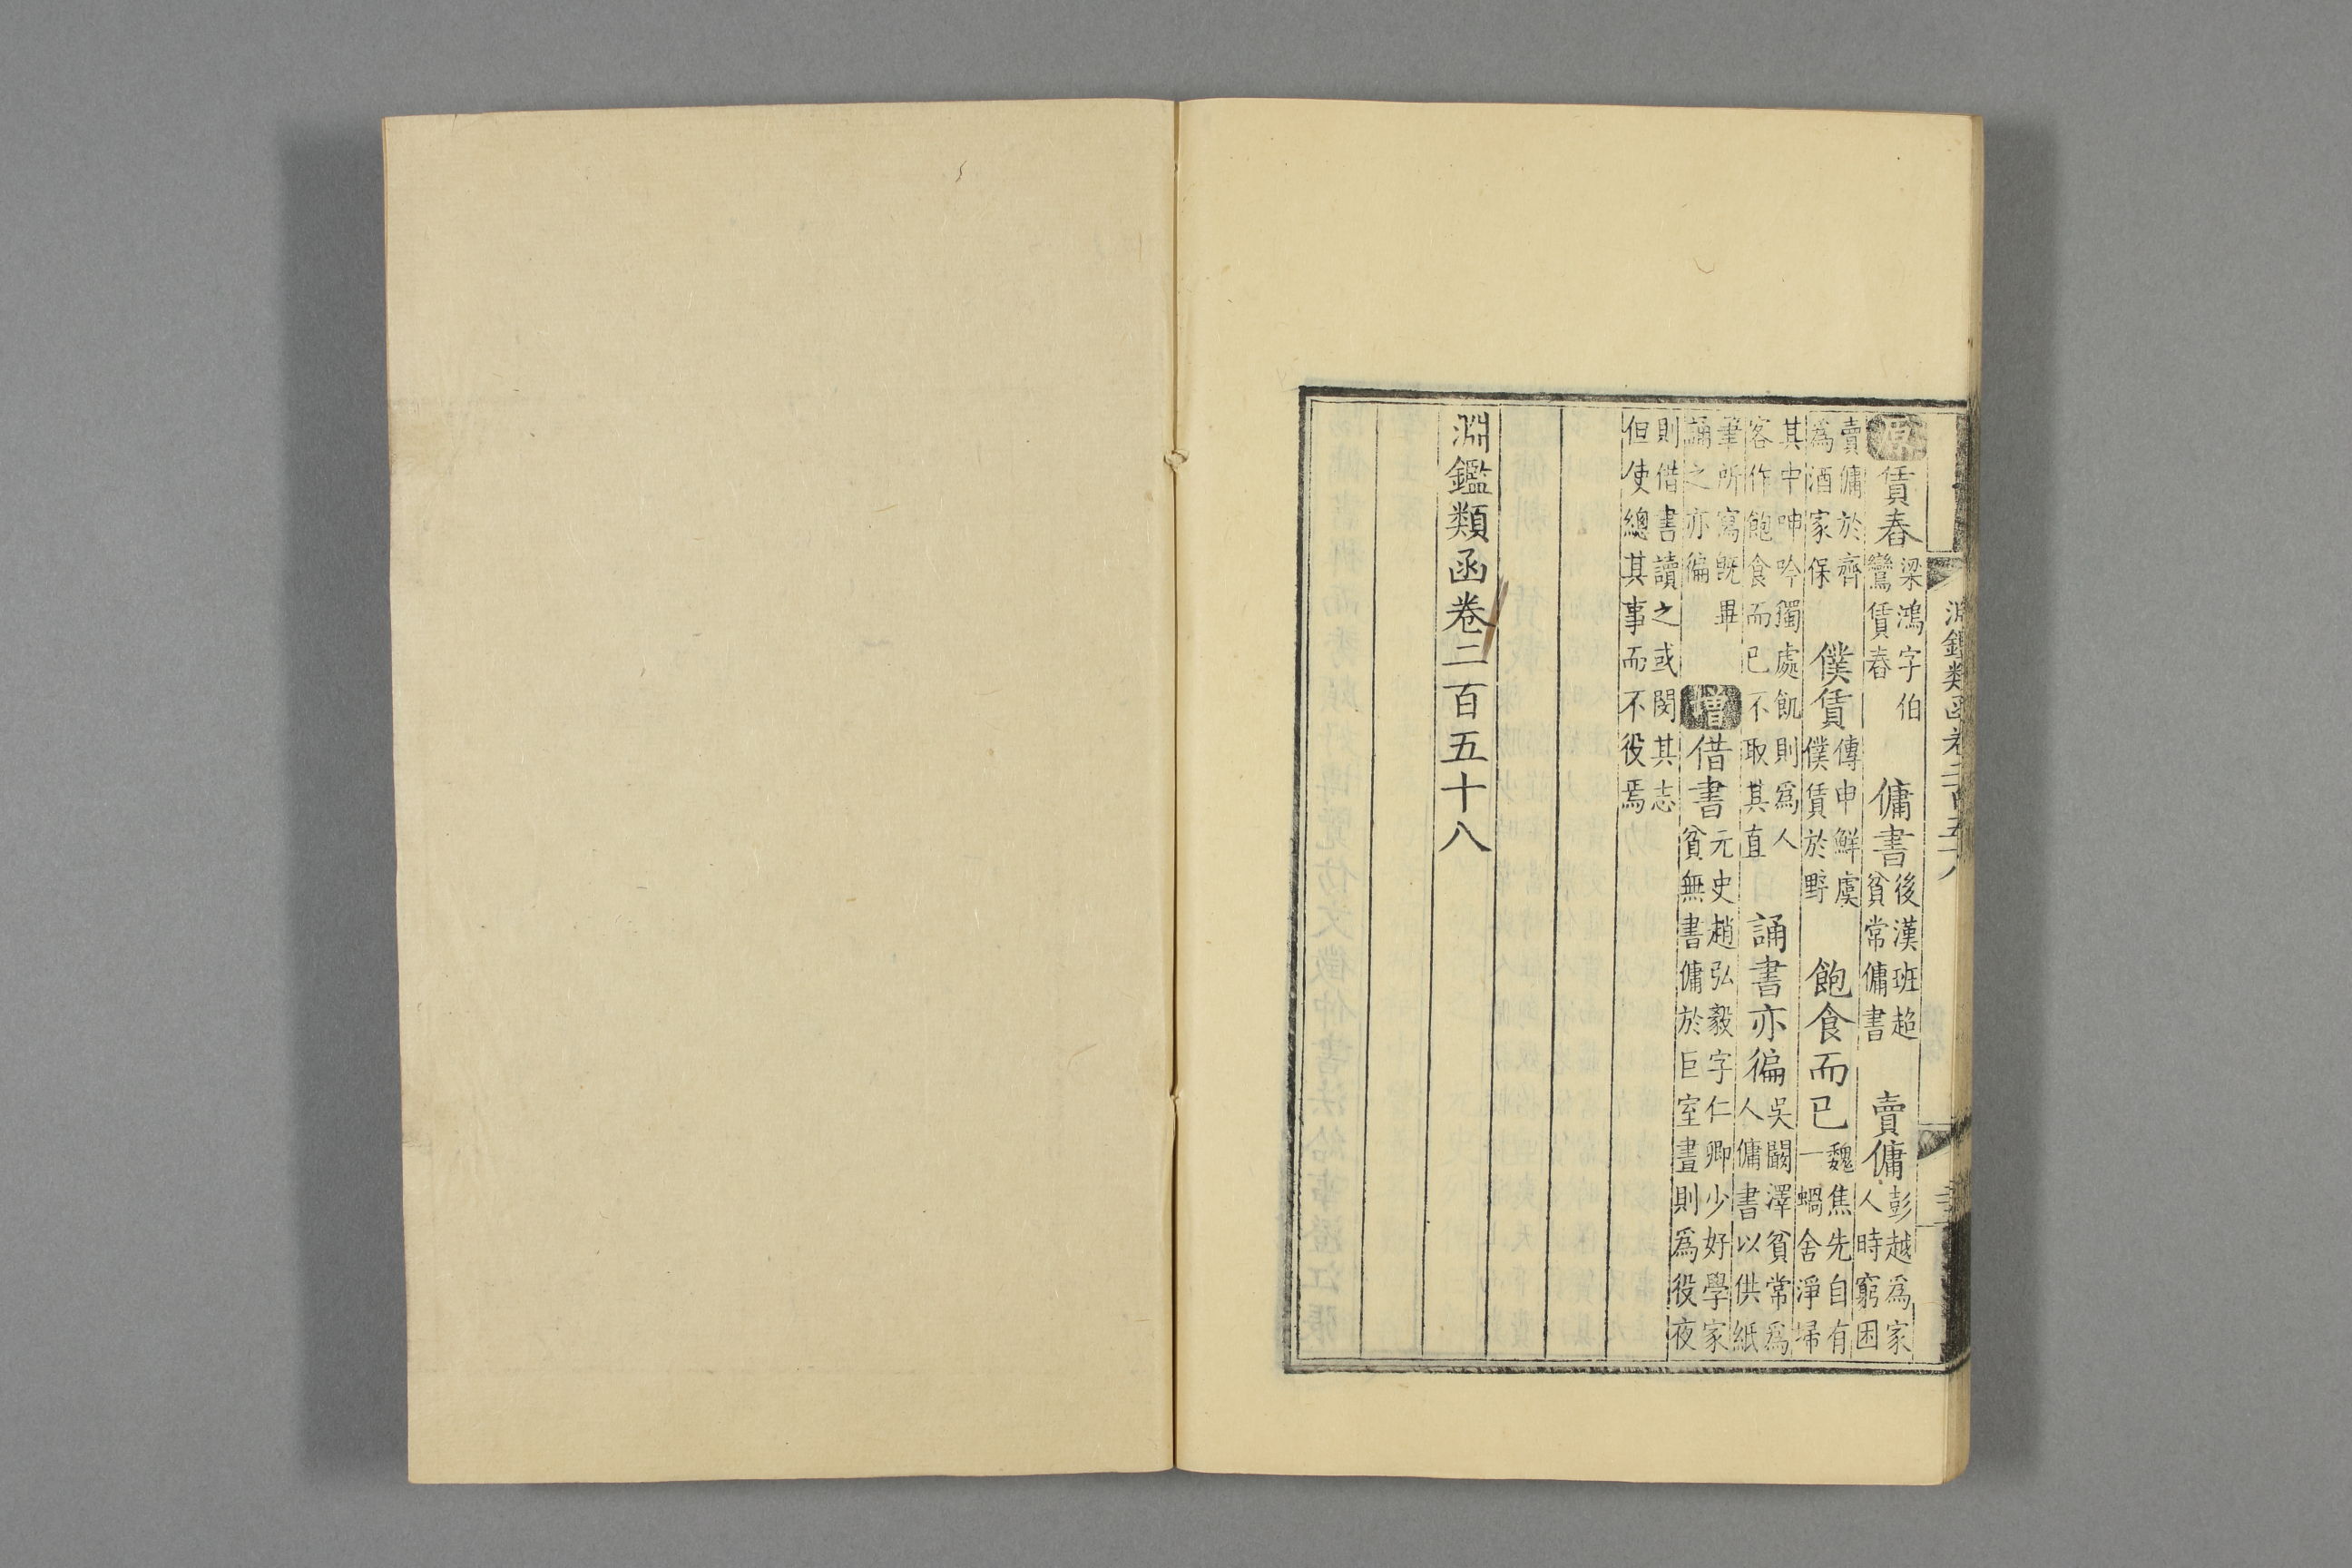 淵鑑類函卷二百五十八
原賃舂梁鴻字伯鸞賃舂 傭書後漢班超貧常傭書 賣傭彭越爲家人時窮困
賣傭於齊爲酒家保 僕賃傳申鮮虞僕賃於野 飽食而已魏焦先自有一蝸舍淨掃
其中呻吟獨處飢則爲人客作飽食而已不取其直 誦書亦徧吳闞澤貧常爲人傭書以供紙
筆所寫既畢誦之亦徧 增借書元史趙弘毅字仁卿少好學家貧無書傭於巨室晝則爲役夜
則借書讀之或閔其志但使總其事而不役焉
淵鑑類函卷二百五十八